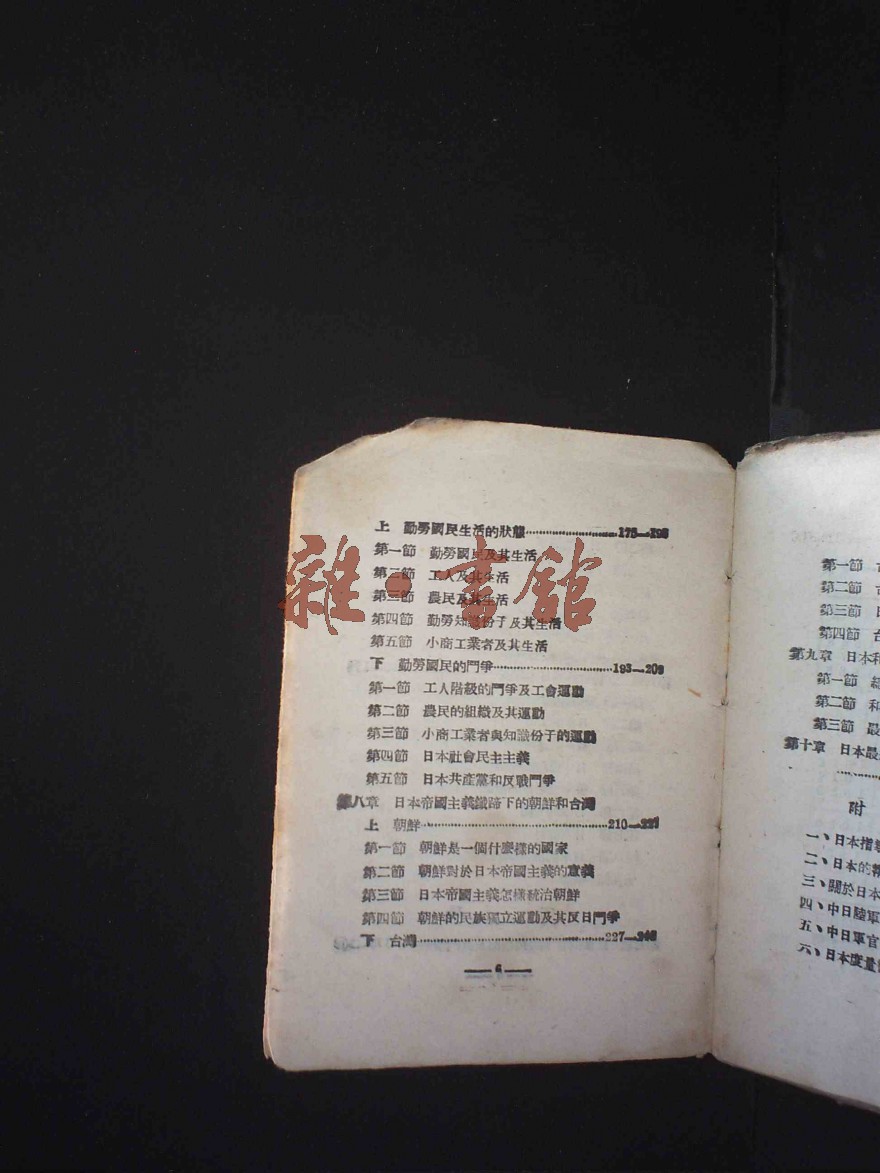 上 勤勞國民生活的狀態……175—193
第一節 勤勞國民及其生活
第二節 工人及其生活
第三節 農民及其生活
第四節 勤勞知識份子及其生活
第五節 小商工業者及其生活
下 勤勞國民的鬥爭……193—209
第一節 工人階級的鬥爭及工會運動
第二節 農民的組織及其運動
第三節 小商工業者與知識份子的運動
第四節 日本社會民主主義
第五節 日本共產黨和反戰鬥爭
第八章 日本帝國主義鐵蹄下的朝鮮和台灣
上 朝鮮……210—227
第一節 朝鮮是一個什麼樣的國家
第二節 朝鮮對於日本帝國主義的意義
第三節 日本帝國主義怎樣統治朝鮮
第四節 朝鮮的民族獨立運動及其反日鬥爭
下 台灣……227—
—6—
雜·書館
第一節
第二節
第三節
第四節
第九章 日本和
第一節
第二節 和
第三節 最
第十章 日本最
附
一、日本指
二、日本的
三、關於日本
四、中日陸軍
五、中日軍官
六、日本度量